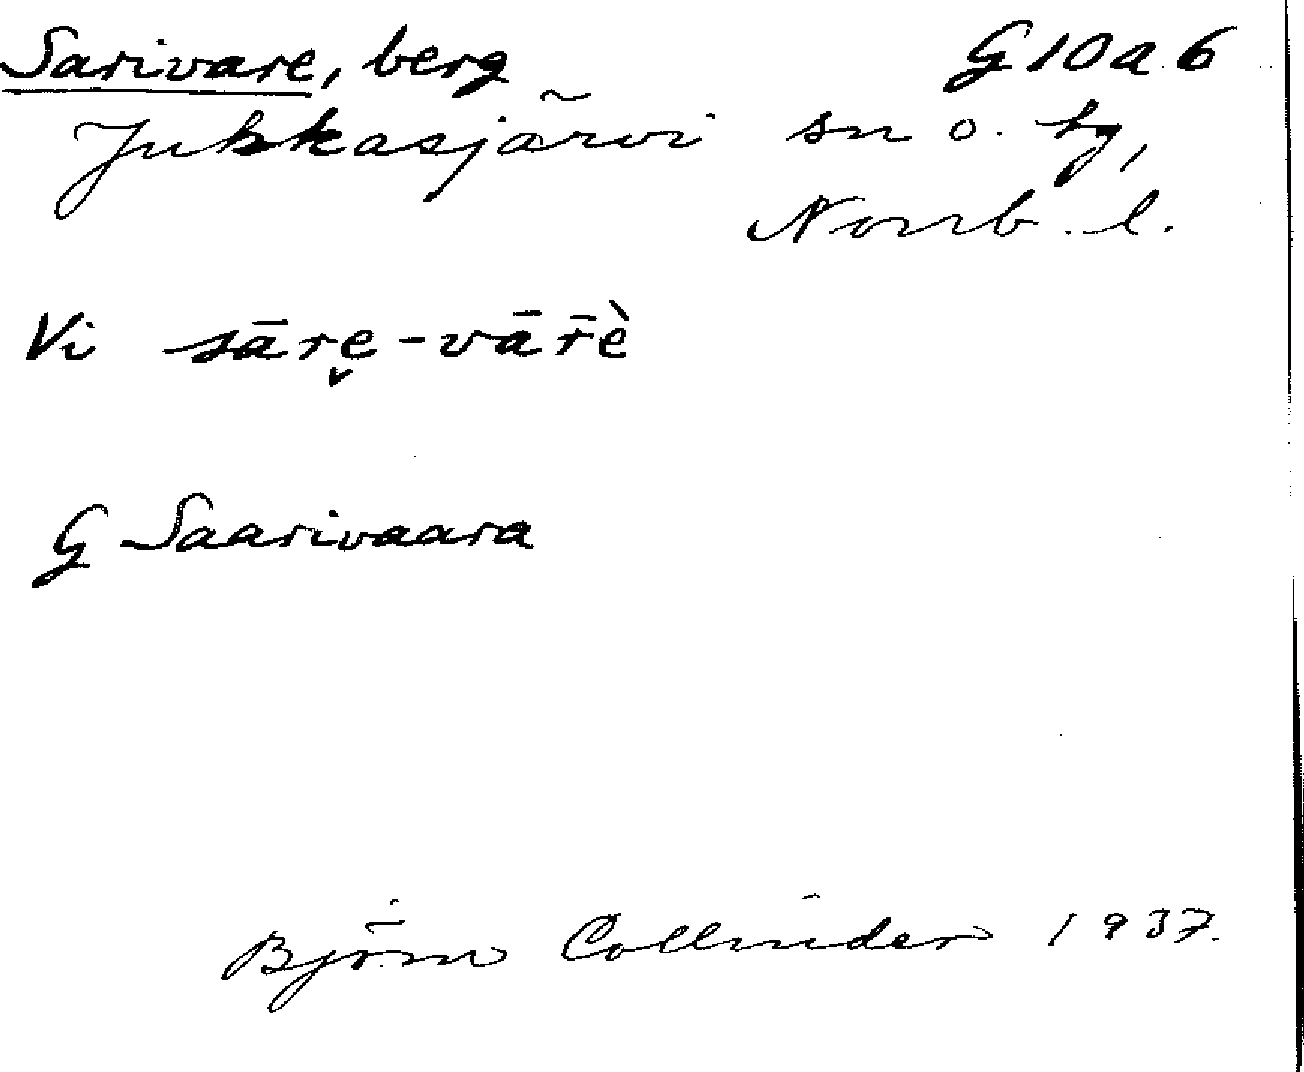 Sarivare, berg G 10 a 6
Jukkasjärvi sn o. tg,
Norrb. l.
Vi sārę̬-vār̄è
G Saarivaara
Björn Collinder 1937.